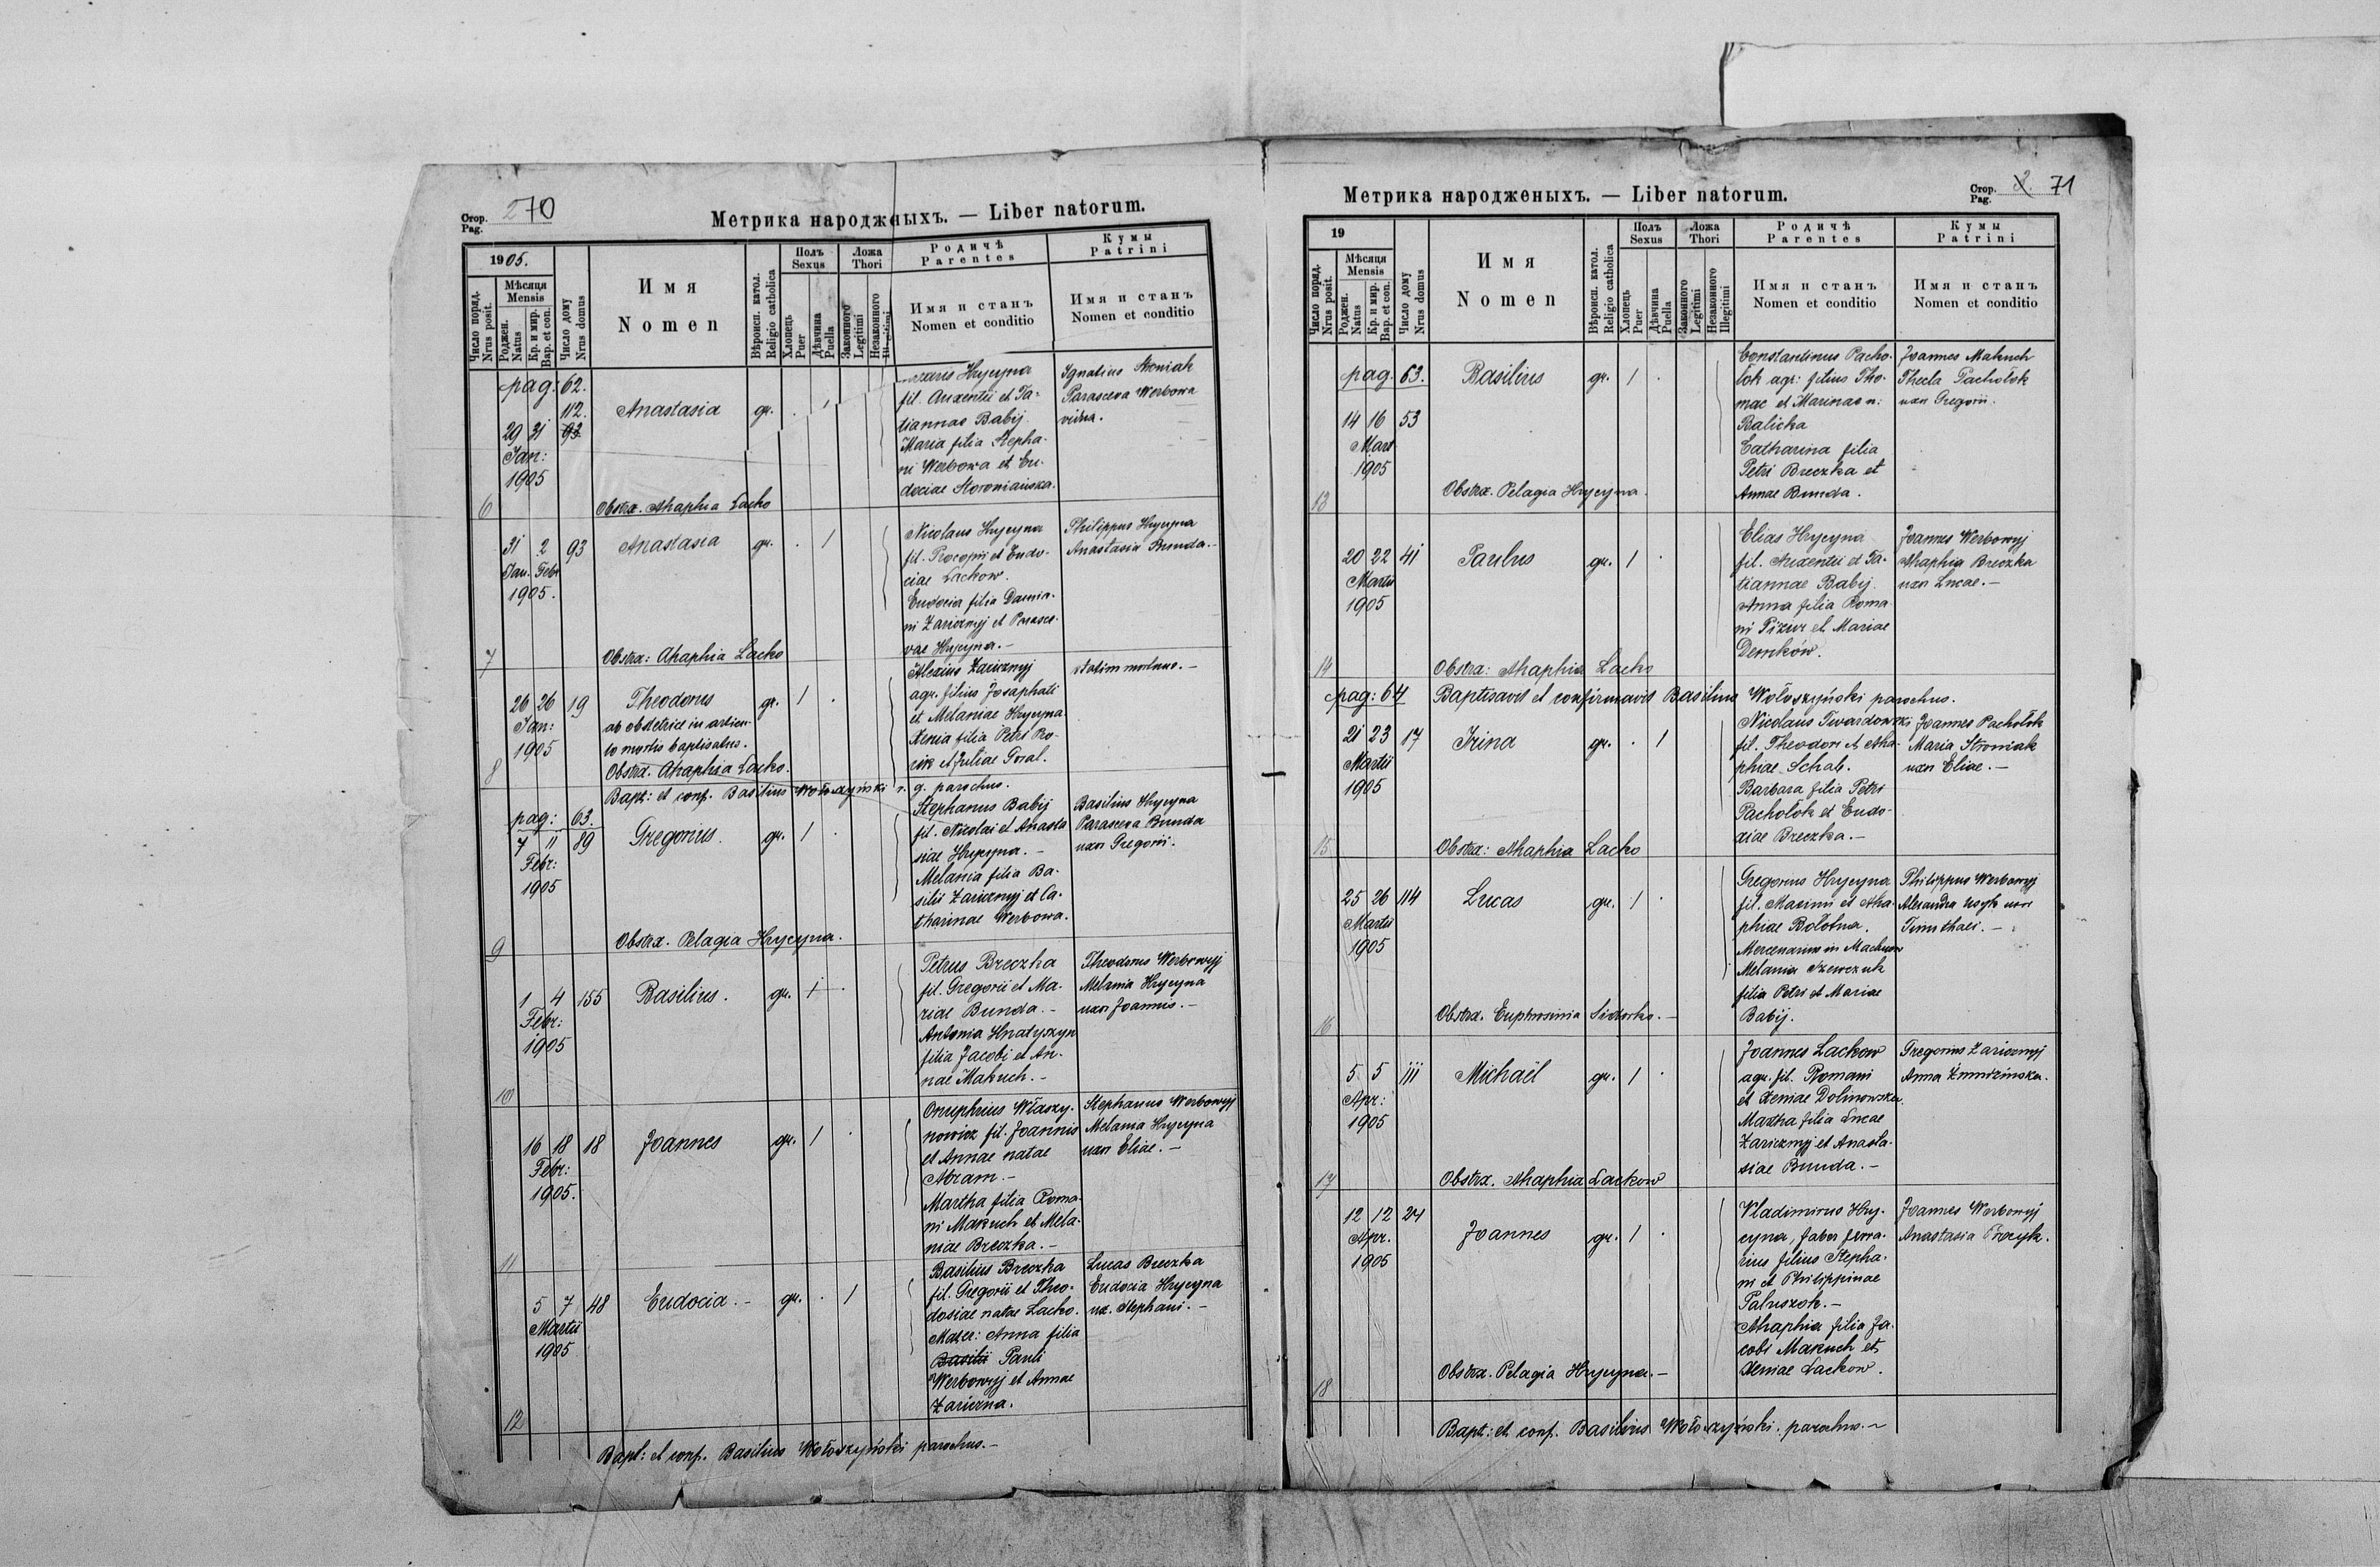 Стор.
Pag. 270
Метрика народженыхъ. — Liber natorum.
1905.
Число поряд.
Nrus posit.
Мѣсяця
Mensis
Роджен.
Natus
Кр. и мир.
Bap. et con.
Число дому
Nrus domus
Имя
Nomen
Вѣроисп. катол.
Religio catholica
Полъ
Sexus
Хлопець
Puer
Дѣвчина
Puella
Ложа
Thori
Законного
Legitimi
Незаконного
Родичѣ
Parentes
Имя и станъ
Nomen et conditio
Кумы
Patrini
Имя и станъ
Nomen et conditio
pag: 62.
6
29 31 112. 93.
Jan:
1905
Anastasia gr. . 1
Hrycyna
fil. Auxentii et Ta-
tiannae Babij
Maria filia Stepha-
ni Werbowa et Eu-
dociae Storoniańska.
Ignatius Stroniak
Parasceva Werbowa
vidua.
Obstx. Ahaphia Lacko
7
31 2 93
Jan. Febr
1905.
Anastasia gr. . 1
Nicolaus Hrycyna
fil. Procopii et Eudo-
ciae Lackow.
Eudocia filia Damia-
ni Zaricznyj et Parasce-
vae Hrycyna.—
Philippus Hrycyna
Anastasia Bunda.—
Obstx: Ahaphia Lacko
8
26 26 19
Jan:
1905
Theodorus gr. 1 .
ab obstetrice in articu-
lo mortis baptisatus.
Alexius Zaricznyj
agr. filius Josaphati
et Melaniae Hrycyna
Xenia filia Petri Pro-
cik et Juliae Goral.
statim mortuus.—
Obstx. Ahaphia Lacko.
Bapt: et conf. Basilius Wołoszyński r. g. parochus.
pag: 63.
9
7 11 89
Febr:
1905
Gregorius. gr. 1 .
Stephanus Babij
fil. Nicolai et Anasta
siae Hrycyna.—
Melania filia Ba-
silii Zaricznyj et Ca-
tharinae Werbowa.
Basilius Hrycyna
Parasceva Bunda
uxor Gregorii.
Obstx. Pelagia Hrycyna.
10
1 4 155
Febr:
1905
Basilius. gr. 1 .
Petrus Breczka
fil. Gregorii et Ma-
riae Bunda.—
Antonia Hnatyszyn
filia Jacobi et An-
nae Makuch.—
Theodorus Werbowyj
Melania Hrycyna
uxor Joannis.—
11
16 18 18
Febr:
1905.
Joannes gr. 1 .
Onuphrius Właszy-
nowicz fil. Joannis
et Annae natae
Abram.—
Martha filia Roma-
ni Makuch et Mela-
niae Breczka.—
Stephanus Werbowyj
Melania Hrycyna
uxor Eliae.—
12
5 7 48
Martii
1905
Eudocia.— gr. . 1
Basilius Breczka
fil. Gregorii et Theo-
dosiae natae Lacko.
Mater: Anna filia
Basilii Pauli
Werbowyj et Annae
Zariczna.
Lucas Breczka
Eudocia Hrycyna
ux. Stephani.—
Bapt: et conf. Basilius Wołoszyński parochus.—
Метрика народженыхъ. — Liber natorum.
Стор.
Pag. 71
19
Число поряд.
Nrus posit.
Мѣсяця
Mensis
Роджен.
Natus
Кр. и мир.
Bap. et con.
Число дому
Nrus domus
Имя
Nomen
Вѣроисп. катол.
Religio catholica
Полъ
Sexus
Хлопець
Puer
Дѣвчина
Puella
Ложа
Thori
Законного
Legitimi
Незаконного
Illegitimi
Родичѣ
Parentes
Имя и станъ
Nomen et conditio
Кумы
Patrini
Имя и станъ
Nomen et conditio
pag. 63.
13
14 16 53
Mart
1905
Basilius gr. 1 .
Constantinus Pacho-
łok agr: filius Tho-
mae et Marinae n:
Balicka
Catharina filia
Petri Breczka et
Annae Bunda.
Joannes Makuch
Thecla Pachołok
uxor Gregorii.
Obstx. Pelagia Hrycyna.
14
20 22 41
Martii
1905
Paulus gr. 1 .
Elias Hrycyna
fil. Auxentii et Ta-
tiannae Babij.
Anna filia Roma
ni Pizur et Mariae
Demków.
Joannes Werbowyj
Ahaphia Breczka
uxor Lucae.—
Obstx: Ahaphia Lacko
pag: 64 Baptisavit et confirmavit Basilius Wołoszyński parochus.
15
21 23 17
Martii
1905
Irina gr. . 1
Nicolaus Twardowski
fil. Theodori et Aha-
phiae Schab.
Barbara filia Petri
Pachołok et Eudo-
xiae Breczka.—
Joannes Pachołok
Maria Stroniak
uxor Eliae.—
Obstx: Ahaphia Lacko
16
25 26 114
Martii
1905
Lucas gr. 1 .
Gregorius Hrycyna
fil. Maximi et Aha-
phiae Bołotna.
Mercenarius in Machnow
Melania Szewczuk
filia Petri et Mariae
Babij.
Philippus Werbowyj
Alexandra Usyk uxor
Timothaei.—
Obstx. Euphrosinia Sidorko.—
17
5 5 111
Apr:
1905
Michaël gr. 1 .
Joannes Lackow
agr. fil. Romani
et Xeniae Dolinowska.
Martha filia Lucae
Zaricznyj et Anasta-
siae Bunda.—
Gregorius Zaricznyj
Anna
Obstx. Ahaphia Lackow
18
12 12 24
Apr.
1905
Joannes gr. 1 .
Vladimirus Hry-
cyna, faber ferra-
rius filius Stepha-
ni et Philippinae
Paluszok.—
Ahaphia filia Ja-
cobi Makuch et
Xeniae Lackow.
Joannes Werbowyj
Anastasia Procyk.
Obstx. Pelagia Hrycyna.—
Bapt: et conf. Basilius Wołoszyński. parochus.—